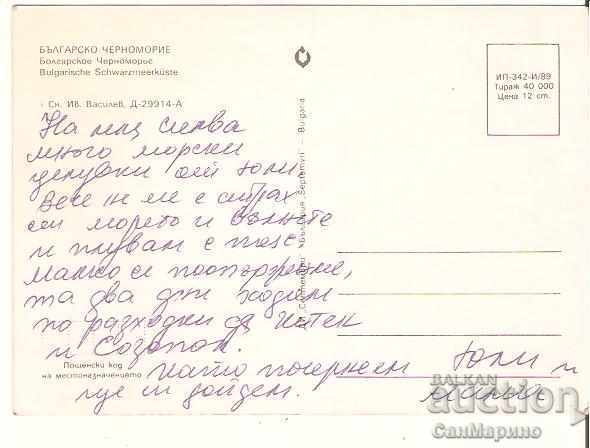 БЪЛГАРСКО ЧЕРНОМОРИЕ
Болгарское Черноморье
Bulgarische Schwarzmeerküste
Сн. Ив. Василев, Д-29914-А
ИП-342-И/89
Тираж 40 000
Цена 12 ст.
На
много морски
целувки от Юли
Вече не ме е страх
от морето и вълните
и плувам с
Малко се
та два дни ходим
по разходки до
и Созопол.
Като почернеем
ще си дойдем.
Юли и
"Септември" — България "Septemvri" — Bulgaria
Пощенски код
на местоназначението
BALKAN
auction
СанМарино